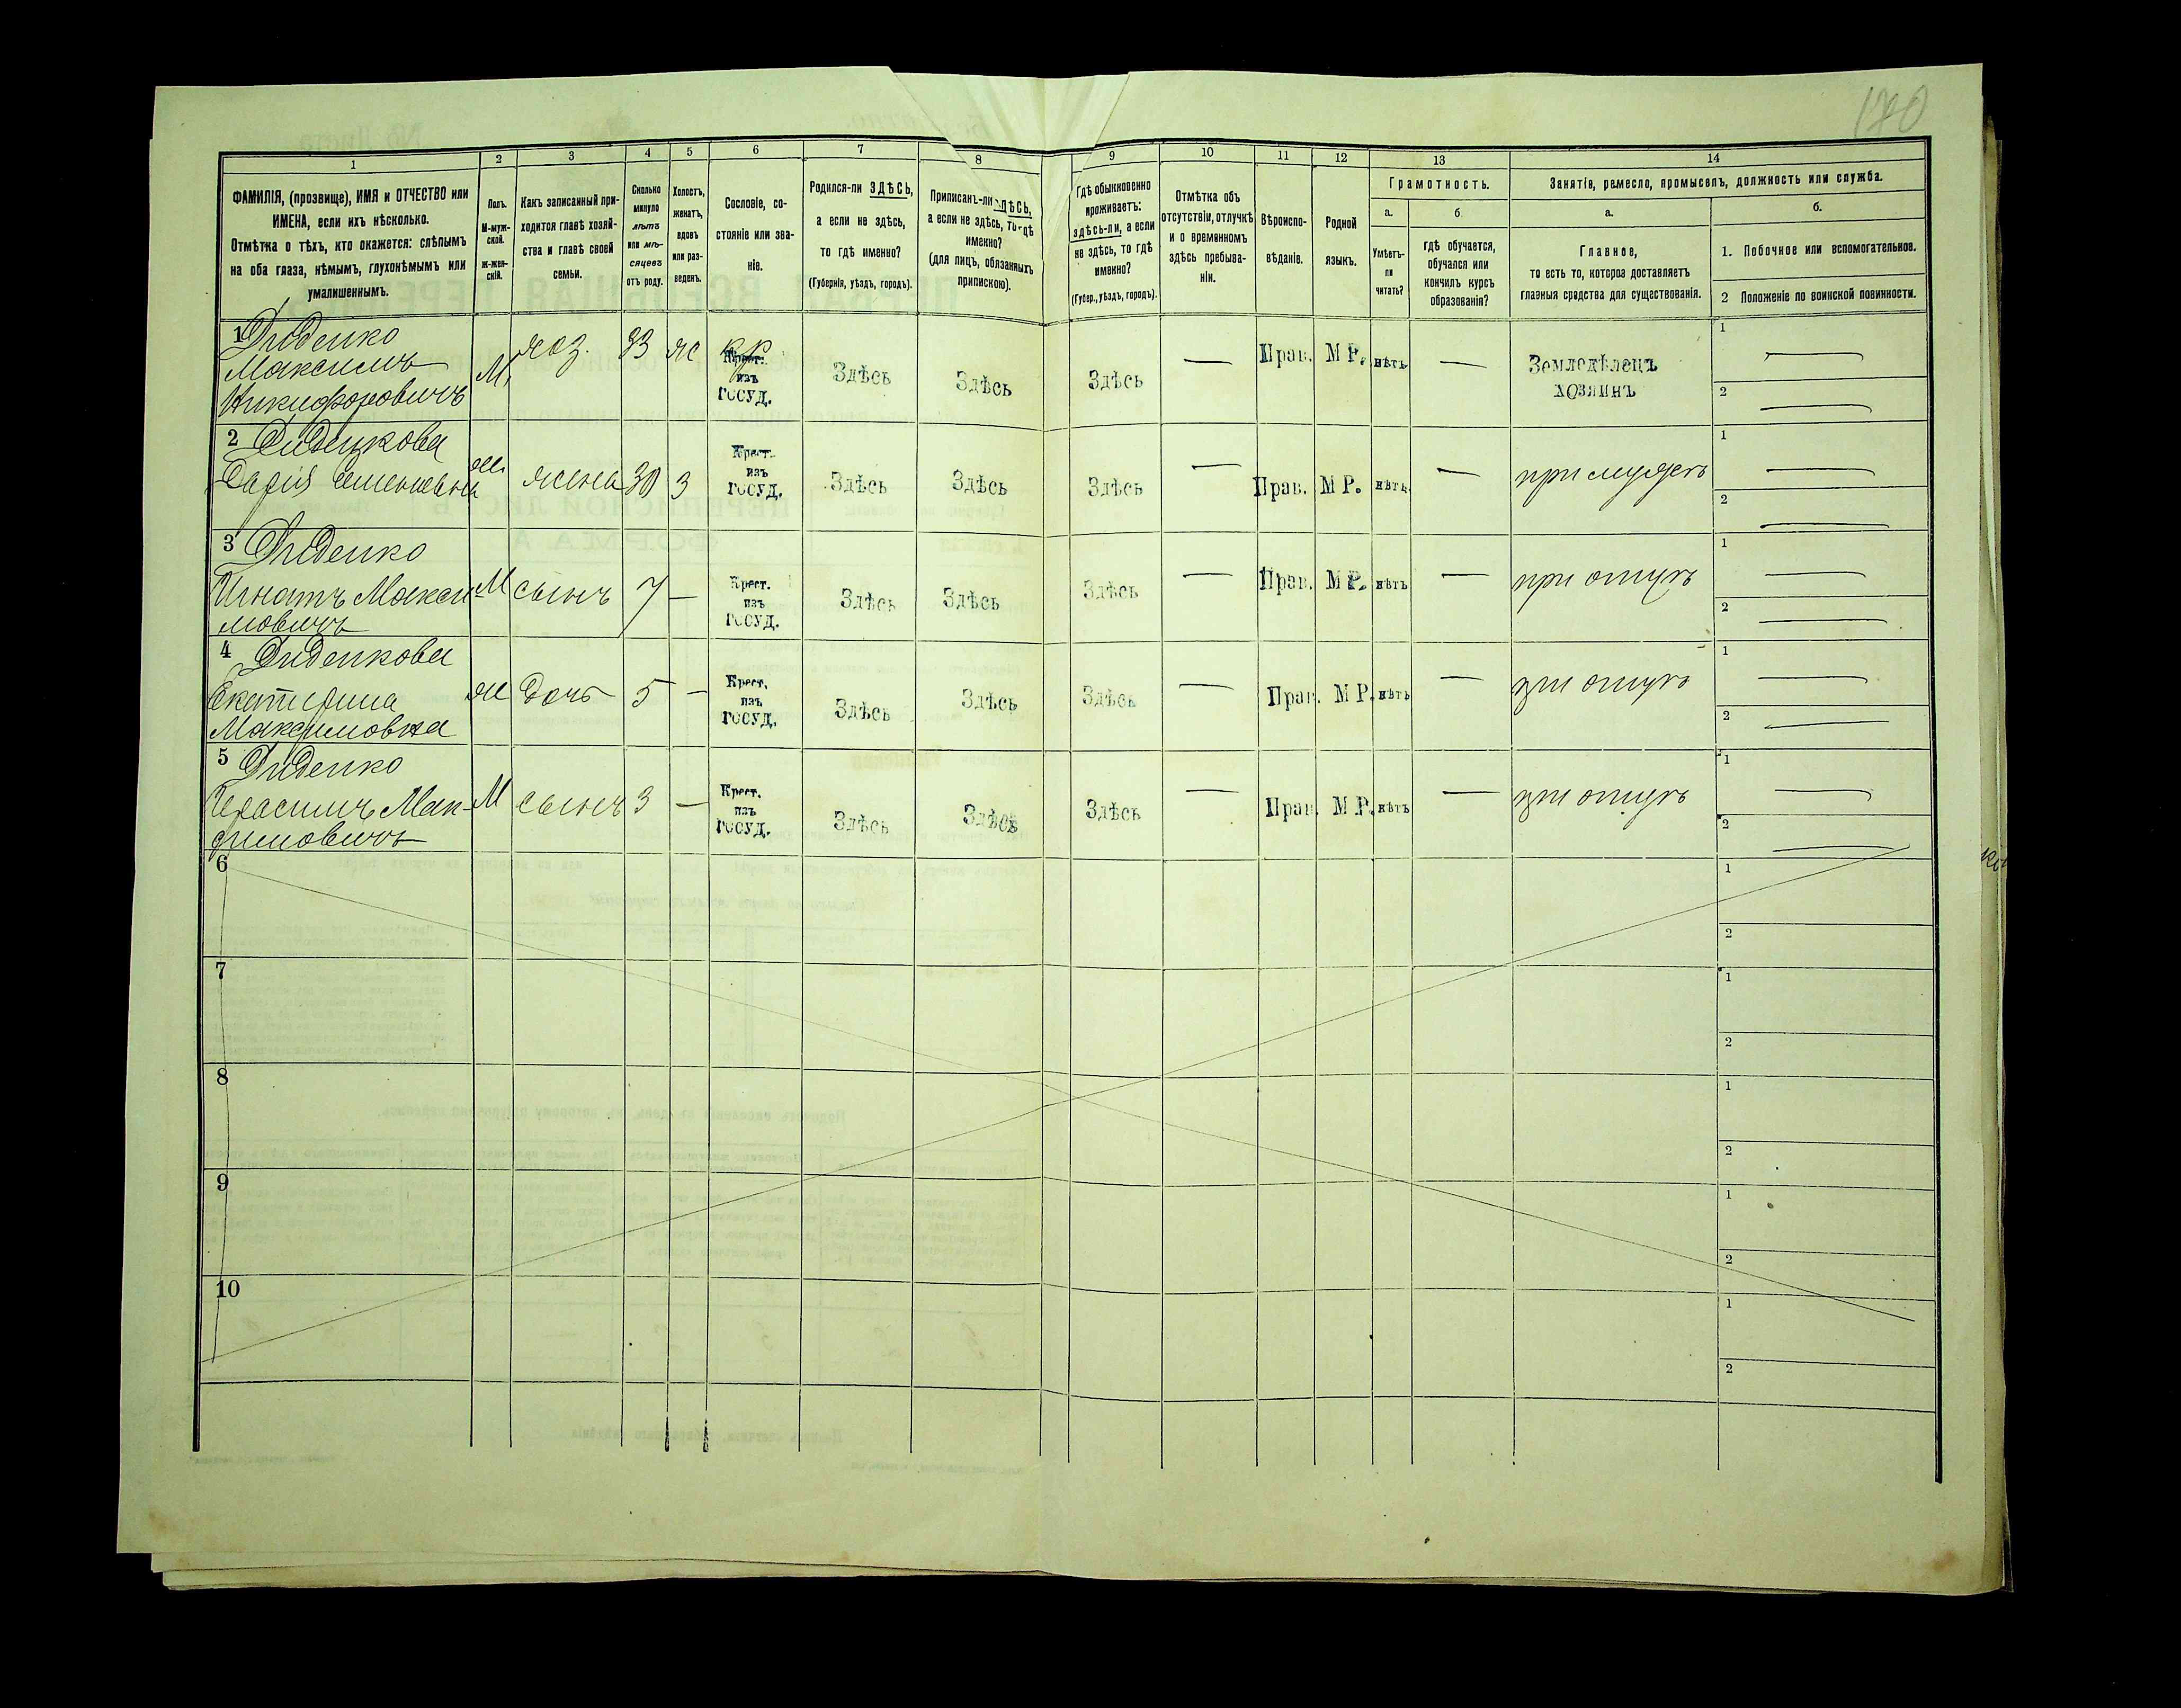 170
1 2 3 4 5 6 7 8 9 10 11 12 13 14
ФАМИЛІЯ, (прозвище), ИМЯ и ОТЧЕСТВО или
ИМЕНА, если ихъ нѣсколько.
Отмѣтка о тѣхъ, кто окажется: слѣпымъ
на оба глаза, нѣмымъ, глухонѣмымъ или
умалишеннымъ.
Полъ.
М-муж-
ской.
ж-жен-
скій.
Какъ записанный при-
ходится главѣ хозяй-
ства и главѣ своей
семьи.
Сколько
минуло
лѣтъ
или мѣ-
сяцевъ
отъ роду.
Холостъ,
женатъ,
вдовъ
или раз-
веденъ.
Сословіе, со-
стояніе или зва-
ніе.
Родился-ли ЗДѢСЬ,
а если не здѣсь,
то гдѣ именно?
(Губернія, уѣздъ, городъ).
Приписанъ-ли ЗДѢСЬ,
а если не здѣсь, то гдѣ
именно?
(для лицъ, обязанныхъ
припискою).
Гдѣ обыкновенно
проживаетъ:
здѣсь-ли, а если
не здѣсь, то гдѣ
именно?
(Губер., уѣздъ, городъ).
Отмѣтка объ
отсутствіи, отлучкѣ
и о временномъ
здѣсь пребыва-
ніи.
Вѣроиспо-
вѣданіе.
Родной
языкъ.
Грамотность.
а.
Умѣетъ-
ли
читать?
б
гдѣ обучается,
обучался или
кончилъ курсъ
образованія?
Занятіе, ремесло, промыселъ, должность или служба.
а.
Главное,
то есть то, которое доставляетъ
главныя средства для существованія.
б.
1. Побочное или вспомогательное.
2 Положеніе по воинской повинности.
1 Диденко
Максимъ
Никифоровичъ
М. хоз. 33 ж кр
Крест.
изъ
ГОСУД.
Здѣсь Здѣсь Здѣсь — Прав. М Р. нѣтъ —
Земледѣлецъ
хозяинъ
1 —
2 —
2 Диденкова
Дарія Семеновна
ж жена 30 З
Крест.
изъ
ГОСУД.
Здѣсь Здѣсь Здѣсь — Прав. М Р. нѣтъ — при мужѣ
1 —
2 —
3 Диденко
Игнатъ Макси-
мовичъ
М сынъ 7 —
Крест.
изъ
ГОСУД.
Здѣсь Здѣсь Здѣсь — Прав. М Р. нѣтъ — при отцѣ
1 —
2 —
4 Диденкова
Екатерина
Максимовна
ж дочь 5 —
Крест.
изъ
ГОСУД.
Здѣсь Здѣсь Здѣсь — Прав. М Р. нѣтъ — при отцѣ
1 —
2 —
5 Диденко
Герасимъ Мак-
симовичъ
М сынъ 3 —
Крест.
изъ
ГОСУД.
Здѣсь Здѣсь Здѣсь — Прав. М Р. нѣтъ — при отцѣ
1 —
2 —
6
1
2
7
1
2
8
1
2
9
1
2
10
1
2